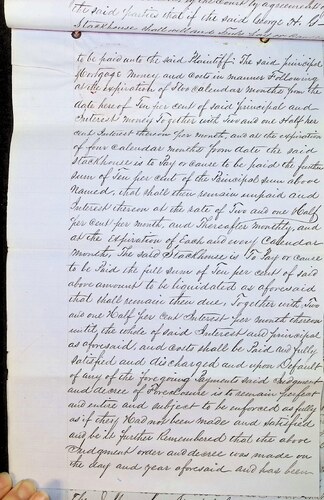 the said parties that if the said George H.
Stackhouse shall well and Truly
to be paid unto the said Plaintiff. The said principal
Mortgage Money and costs in manner Following
at the expiration of calendar months from the
date hereof Ten per cent of said principal and
Interest money Together with Two and one Half per
cent Interest thereon per month, and at the expiration
of four calendar months from date the said
Stackhouse is to Pay or cause to be paid the further
sum of Ten per cent of the Principal sum above
Named, that shall then remain unpaid and
Interest thereon at the rate of Two and one Half
per cent per month, and Thereafter monthly, and
at the Expiration of Each and every Calendar
month, The said Stackhouse is To Pay or cause
to be Paid the full sum of Ten per cent of said
above amount to be liquidated as aforesaid
that shall remain then due, Together with Two
and one Half per cent Interest per month thereon
until the whole of said Interest and principal
as aforesaid, and costs shall be Paid and fully
satisfied and discharged and upon Default
of any of the foregoing Payments said Judgment
and decree of Foreclosure is to remain perfect
and entire and subject to be enforced as fully
as if they Had not been made and satisfied
and be it Further Remembered that the above
Judgment order and decree was made on
the day and year aforesaid and has been